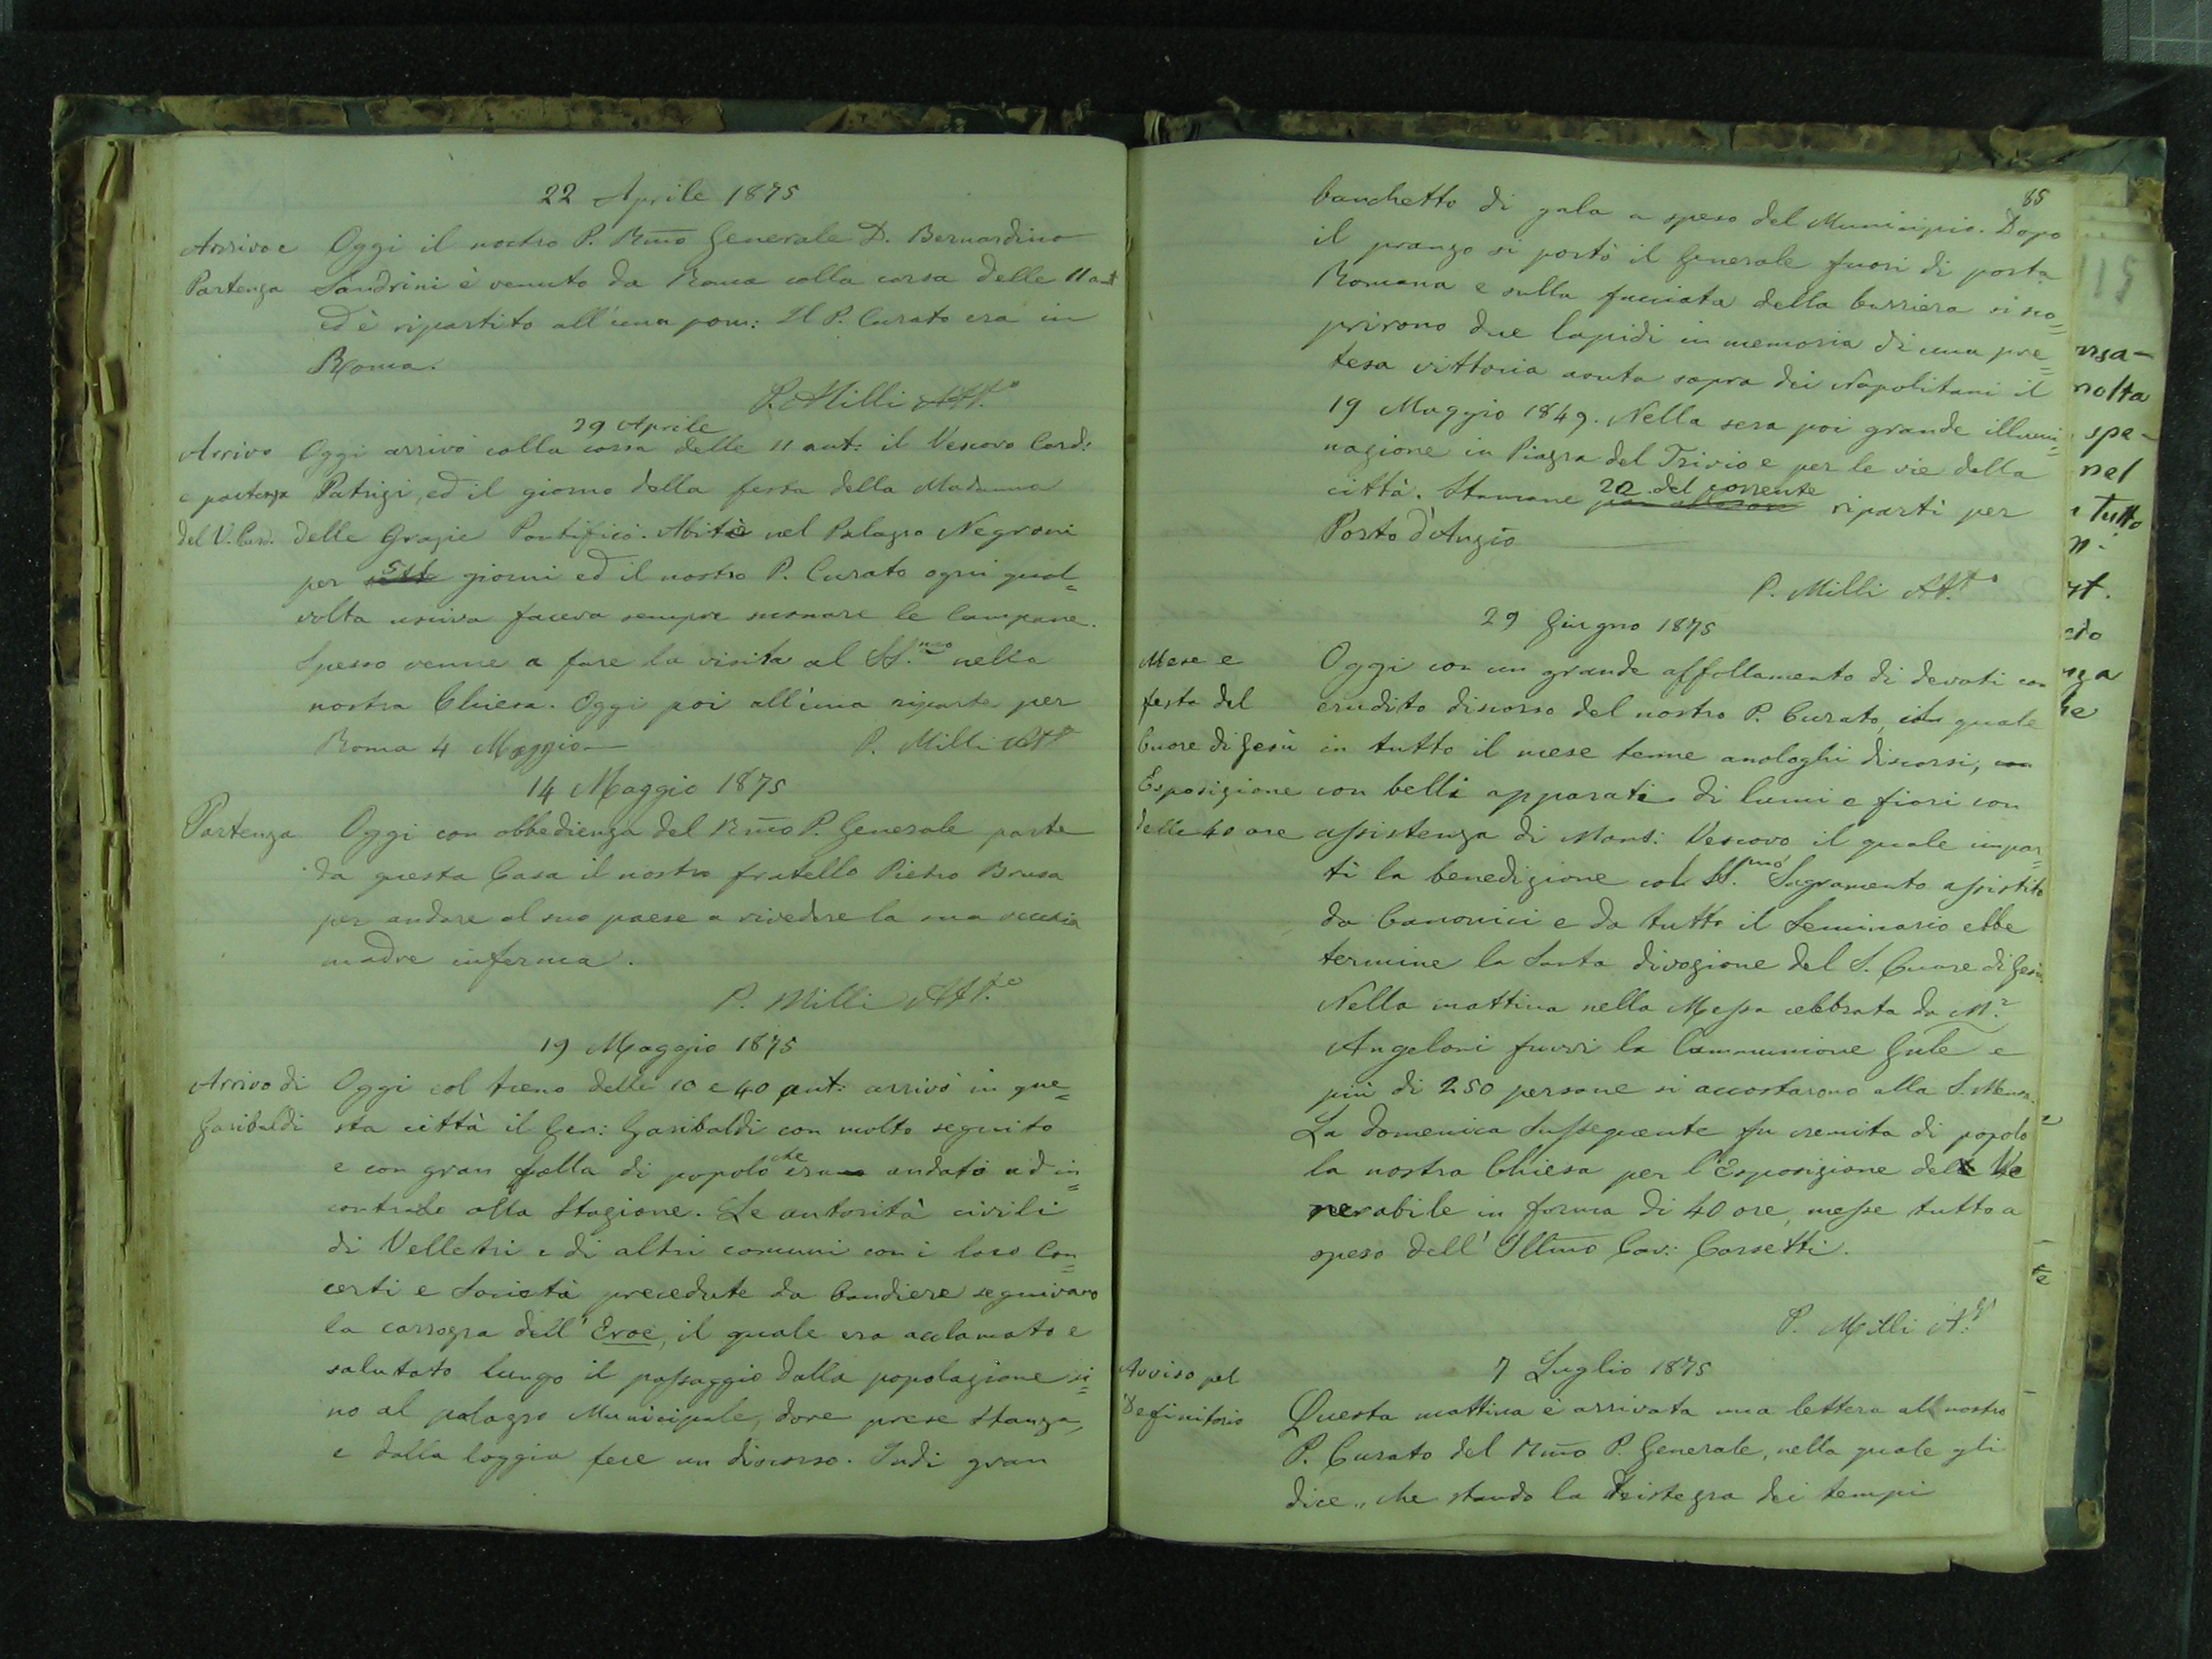 22 Aprile 1875
Arrivo e
Partenza
Oggi il nostro P. Rmo Generale D. Bernardino
Sandrini è venuto da Roma colla corsa delle 11 ant
ed è ripartito all'una pom: Il P. Curato era in
Roma.
P. Milli Att.o
29 Aprile
Arrivo
e partenza
del V. Card.
Oggi arrivò colla corsa delle 11 ant: il Vescovo Card:
Patrizi, ed il giorno della festa della Madonna
delle Grazie Pontificò. Abitò nel Palazzo Negroni
per 5 giorni ed il nostro P. Curato ogni qual=
volta usciva faceva sempre suonare le Campane.
Spesso venne a fare la visita al SS.mo nella
nostra Chiesa. Oggi poi all'una riparte per
Roma 4 Maggio —
P. Milli Att.o
14 Maggio 1875
Partenza
Oggi con obbedienza del Rmo P. Generale parte
da questa Casa il nostro fratello Pietro Brusa
per andare al suo paese a rivedere la sua vecchia
madre inferma.
P. Milli Att.o
19 Maggio 1875
Arrivo di
Garibaldi
Oggi col treno delle 10 e 40 ant: arrivò in que=
sta città il Gen: Garibaldi con molto seguito
e con gran folla di popolo che era andato ad in=
contrarlo alla Stazione. Le autorità civili
di Velletri e di altri comuni con i loro Con=
certi e Società precedute da bandiere seguivano
la carrozza dell'Eroe, il quale era acclamato e
salutato lungo il passaggio dalla popolazione si=
no al palazzo Municipale, dove prese Stanza,
e dalla loggia fece un discorso. Indi gran
85
banchetto di gala a spese del Municipio. Dopo
il pranzo si portò il Generale fuori di porta
Romana e sulla facciata della barriera si sco=
prirono due lapidi in memoria di una pre=
tesa vittoria avuta sopra dei Napolitani il
19 Maggio 1849. Nella sera poi grande illumi=
nazione in Piazza del Trivio e per le vie della
città. Stamane 20 del corrente ripartì per
Porto d'Anzio
P. Milli Att.o
29 Giugno 1875
Mese e
festa del
Cuore di Gesù
Esposizione
delle 40 ore
Oggi con un grande affollamento di devoti con
erudito discorso del nostro P. Curato, il quale
in tutto il mese tenne anologhi discorsi,
con belli apparati di lumi e fiori con
assistenza di Mons: Vescovo il quale impar=
tì la benedizione col SS.mo Sagramento assistito
da Canonici e da tutto il Seminario ebbe
termine la Santa divozione del S. Cuore di Gesù.
Nella mattina nella Messa celebrata da M.r
Angeloni fuvvi la Communione Gnle e
più di 250 persone si accostarono alla S. Mensa.
La domenica Sussequente fu cremita di popolo
la nostra Chiesa per l'Esposizione del Ve
nerabile in forma di 40 ore, messe tutto a
spese dell'Illmo Cav: Corsetti.
P. Milli A.
Avviso pel
Definitorio
7 Luglio 1875
Questa mattina è arrivata una lettera al nostro
P. Curato del Rmo P. Generale, nella quale gli
dice „ che stando la tristezza dei tempi
113
rsa-
molta
spe-
nel
Tutto